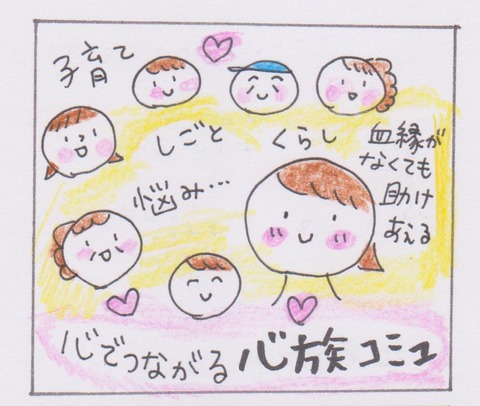 子育て
しごと
くらし
悩み…
血縁が
なくても
助け
あえる
心でつながる心族コミュ